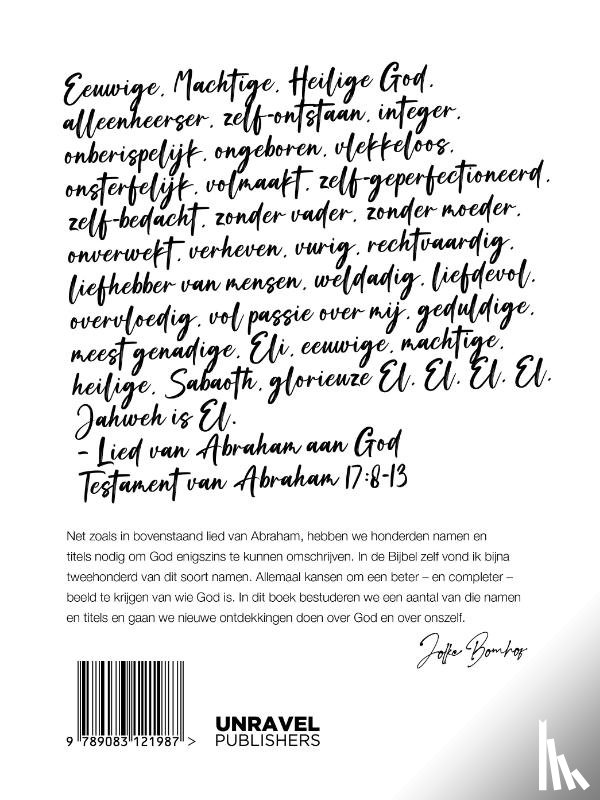 Eeuwige, Machtige, Heilige God,
alleenheerser, zelf-ontstaan, integer,
onberispelijk, ongeboren, vlekkeloos,
onsterfelijk, volmaakt, zelf-geperfectioneerd,
zelf-bedacht, zonder vader, zonder moeder,
onverwekt, verheven, vurig, rechtvaardig,
liefhebber van mensen, weldadig, liefdevol,
overvloedig, vol passie over mij, geduldige,
meest genadige, Eli, eeuwige, machtige,
heilige, Sabaoth, glorieuze El, El, El, El,
Jahweh is El.
- Lied van Abraham aan God
Testament van Abraham 17:8-13
Net zoals in bovenstaand lied van Abraham, hebben we honderden namen en
titels nodig om God enigszins te kunnen omschrijven. In de Bijbel zelf vond ik bijna
tweehonderd van dit soort namen. Allemaal kansen om een beter – en completer –
beeld te krijgen van wie God is. In dit boek bestuderen we een aantal van die namen
en titels en gaan we nieuwe ontdekkingen doen over God en over onszelf.
Jolke Bomhof
9 789083 121987 >
UNRAVEL
PUBLISHERS